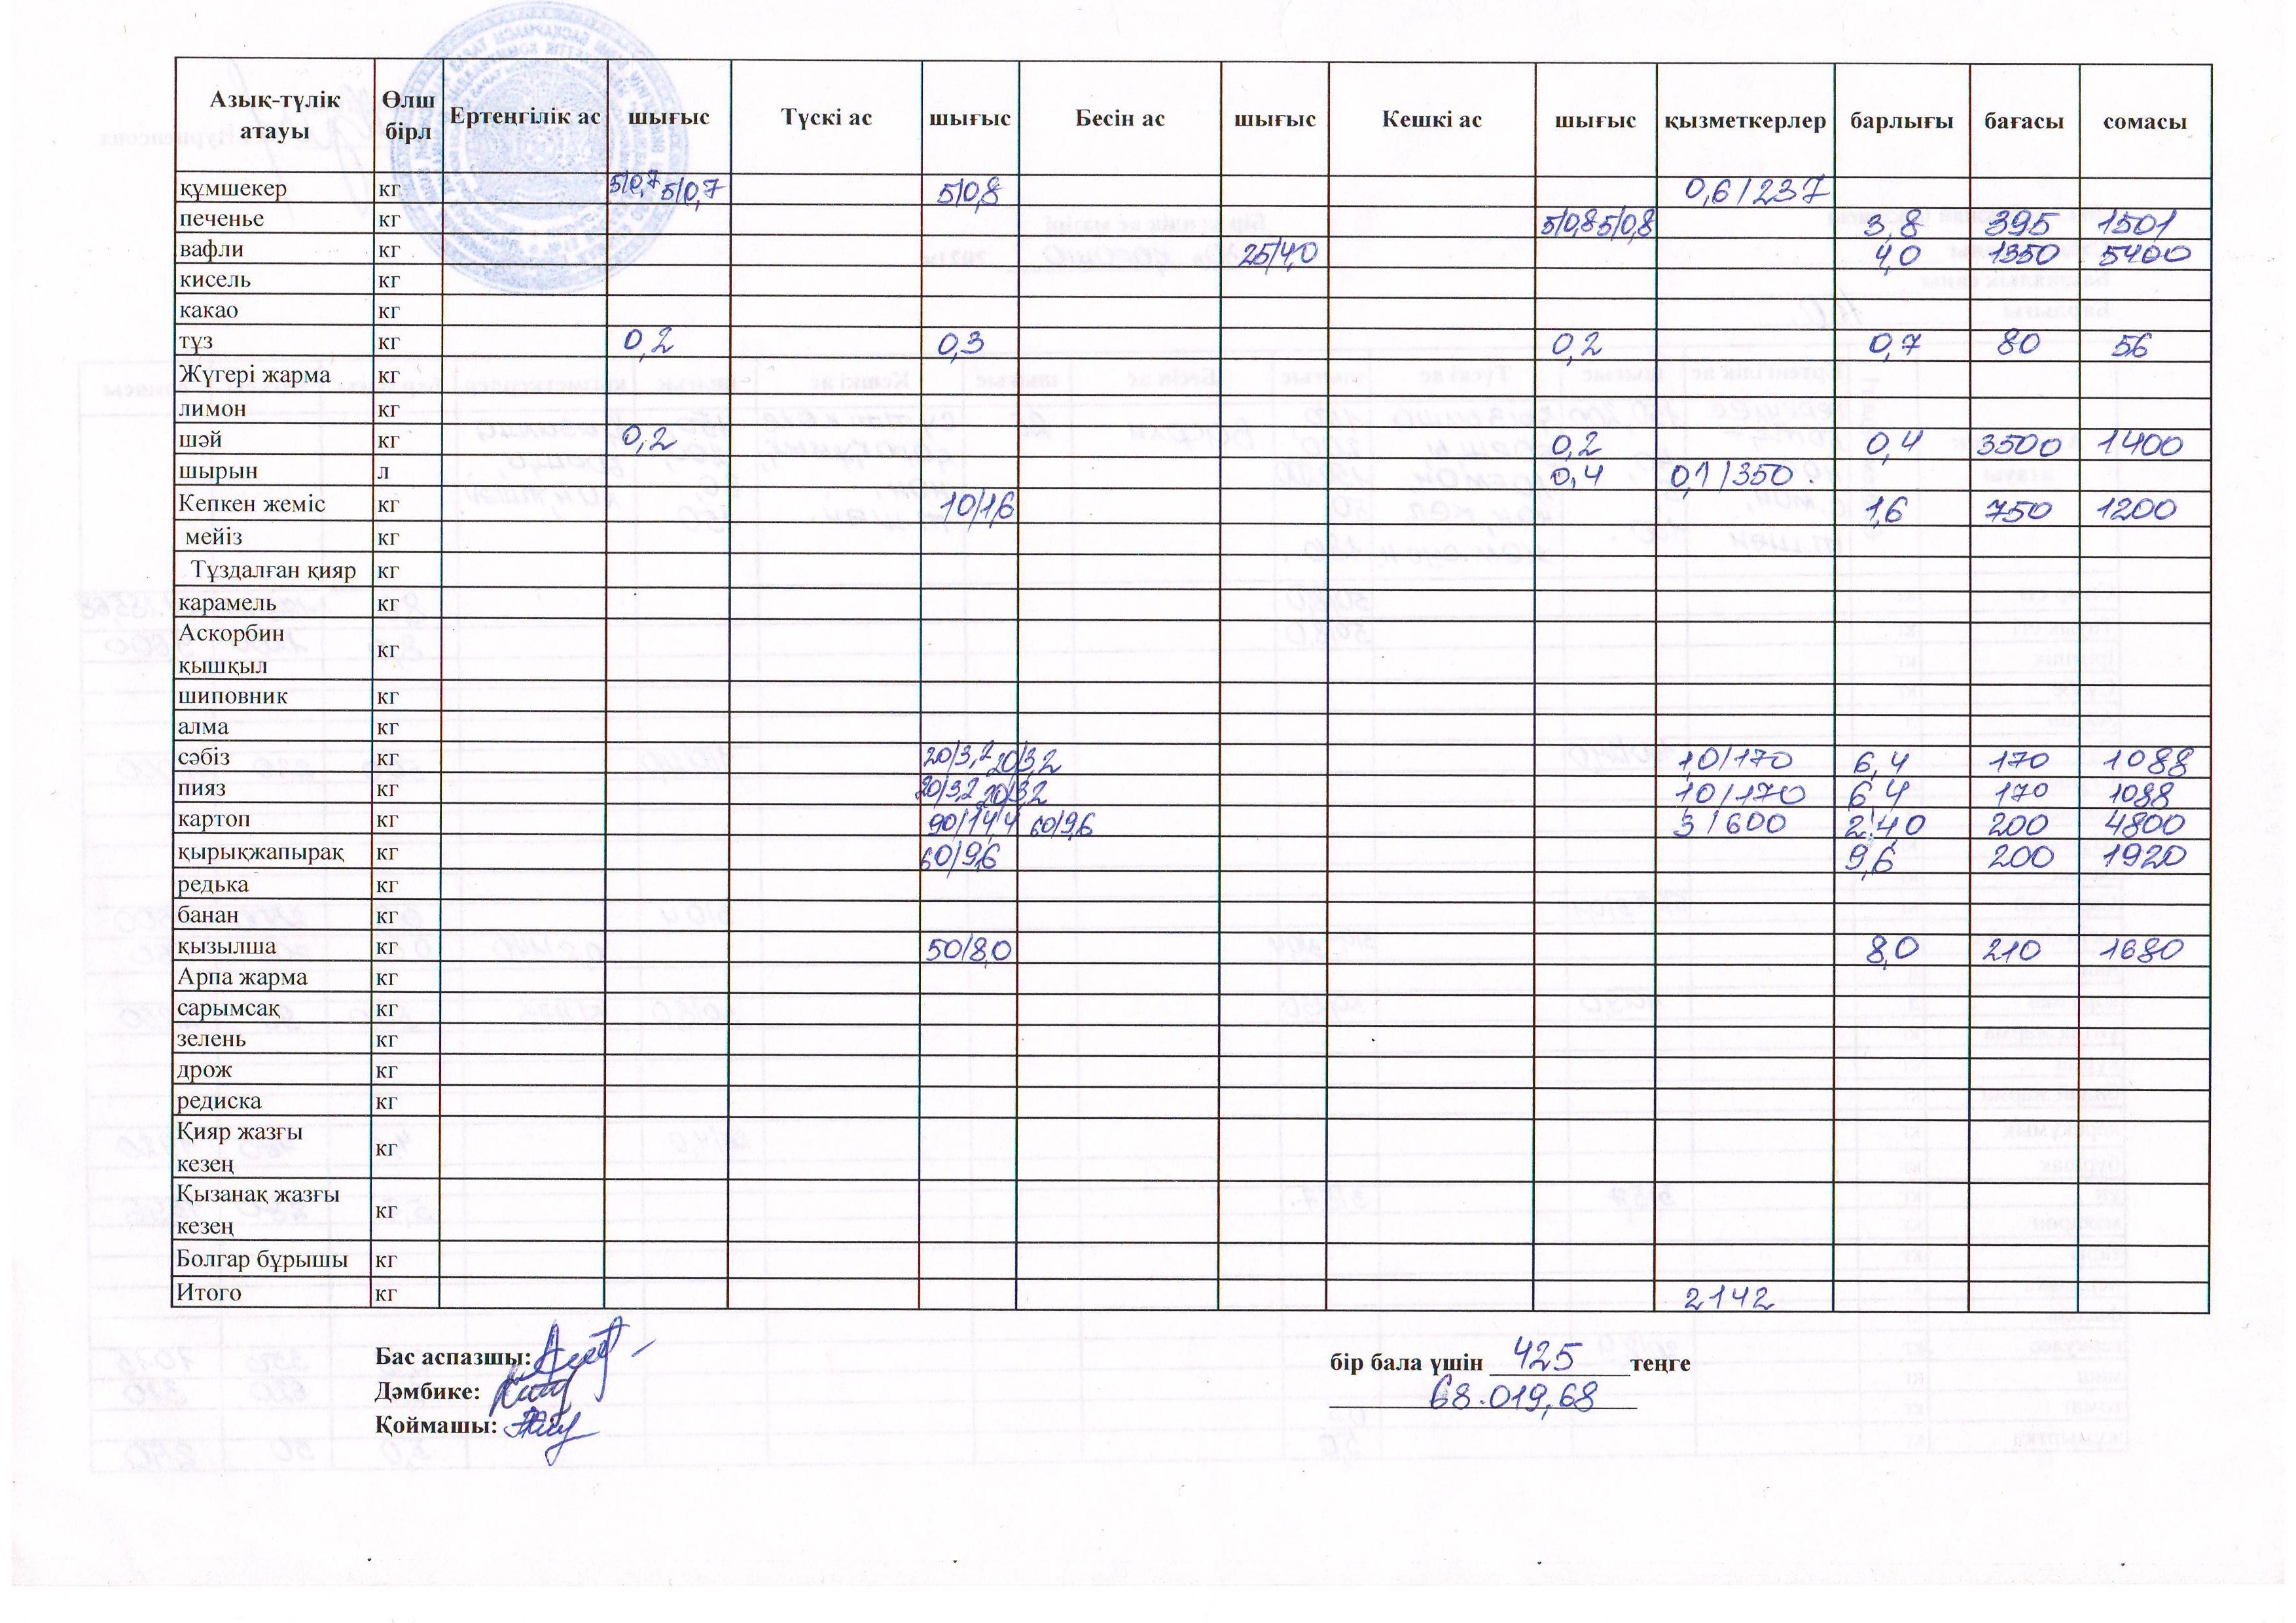 Азық-түлік атауы Өлш бірл Ертеңгілік ас шығыс Түскі ас шығыс Бесін ас шығыс Кешкі ас шығыс қызметкерлер барлығы бағасы сомасы
құмшекер кг 5/0,7 5/0,7 5/0,8 0,6/237
печенье кг 5/0,8 5/0,8 3,8 395 1501
вафли кг 25/4,0 4,0 1350 5400
кисель кг
какао кг
тұз кг 0,2 0,3 0,2 0,7 80 56
Жүгері жарма кг
лимон кг
шәй кг 0,2 0,2 0,4 3500 1400
шырын л 0,4 0,1/350
Кепкен жеміс кг 10/1,6 1,6 750 1200
мейіз кг
Тұздалған қияр кг
карамель кг
Аскорбин қышқыл кг
шиповник кг
алма кг
сәбіз кг 20/3,2 20/3,2 1,0/170 6,4 170 1088
пияз кг 20/3,2 20/3,2 1,0/170 6,4 170 1088
картоп кг 90/14,4 60/9,6 3/600 2.40 200 4800
қырықжапырақ кг 60/9,6 9,6 200 1920
редька кг
банан кг
қызылша кг 50/8,0 8,0 210 1680
Арпа жарма кг
сарымсақ кг
зелень кг
дрож кг
редиска кг
Қияр жазғы кезең кг
Қызанақ жазғы кезең кг
Болгар бұрышы кг
Итого кг 2142
Бас аспазшы:
бір бала үшін 425 теңге
Дәмбике:
68.019,68
Қоймашы: